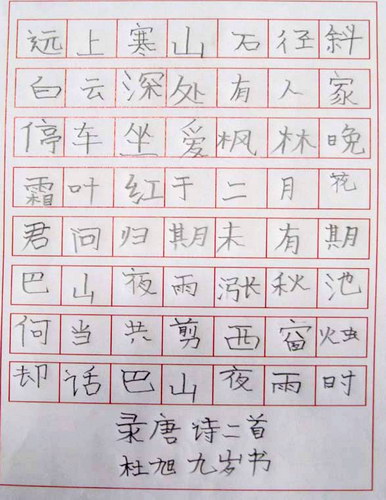 远上寒山石径斜
白云深处有人家
停车坐爱枫林晚
霜叶红于二月花
君问归期未有期
巴山夜雨涨秋池
何当共剪西窗烛
却话巴山夜雨时
录唐诗二首
杜旭九岁书